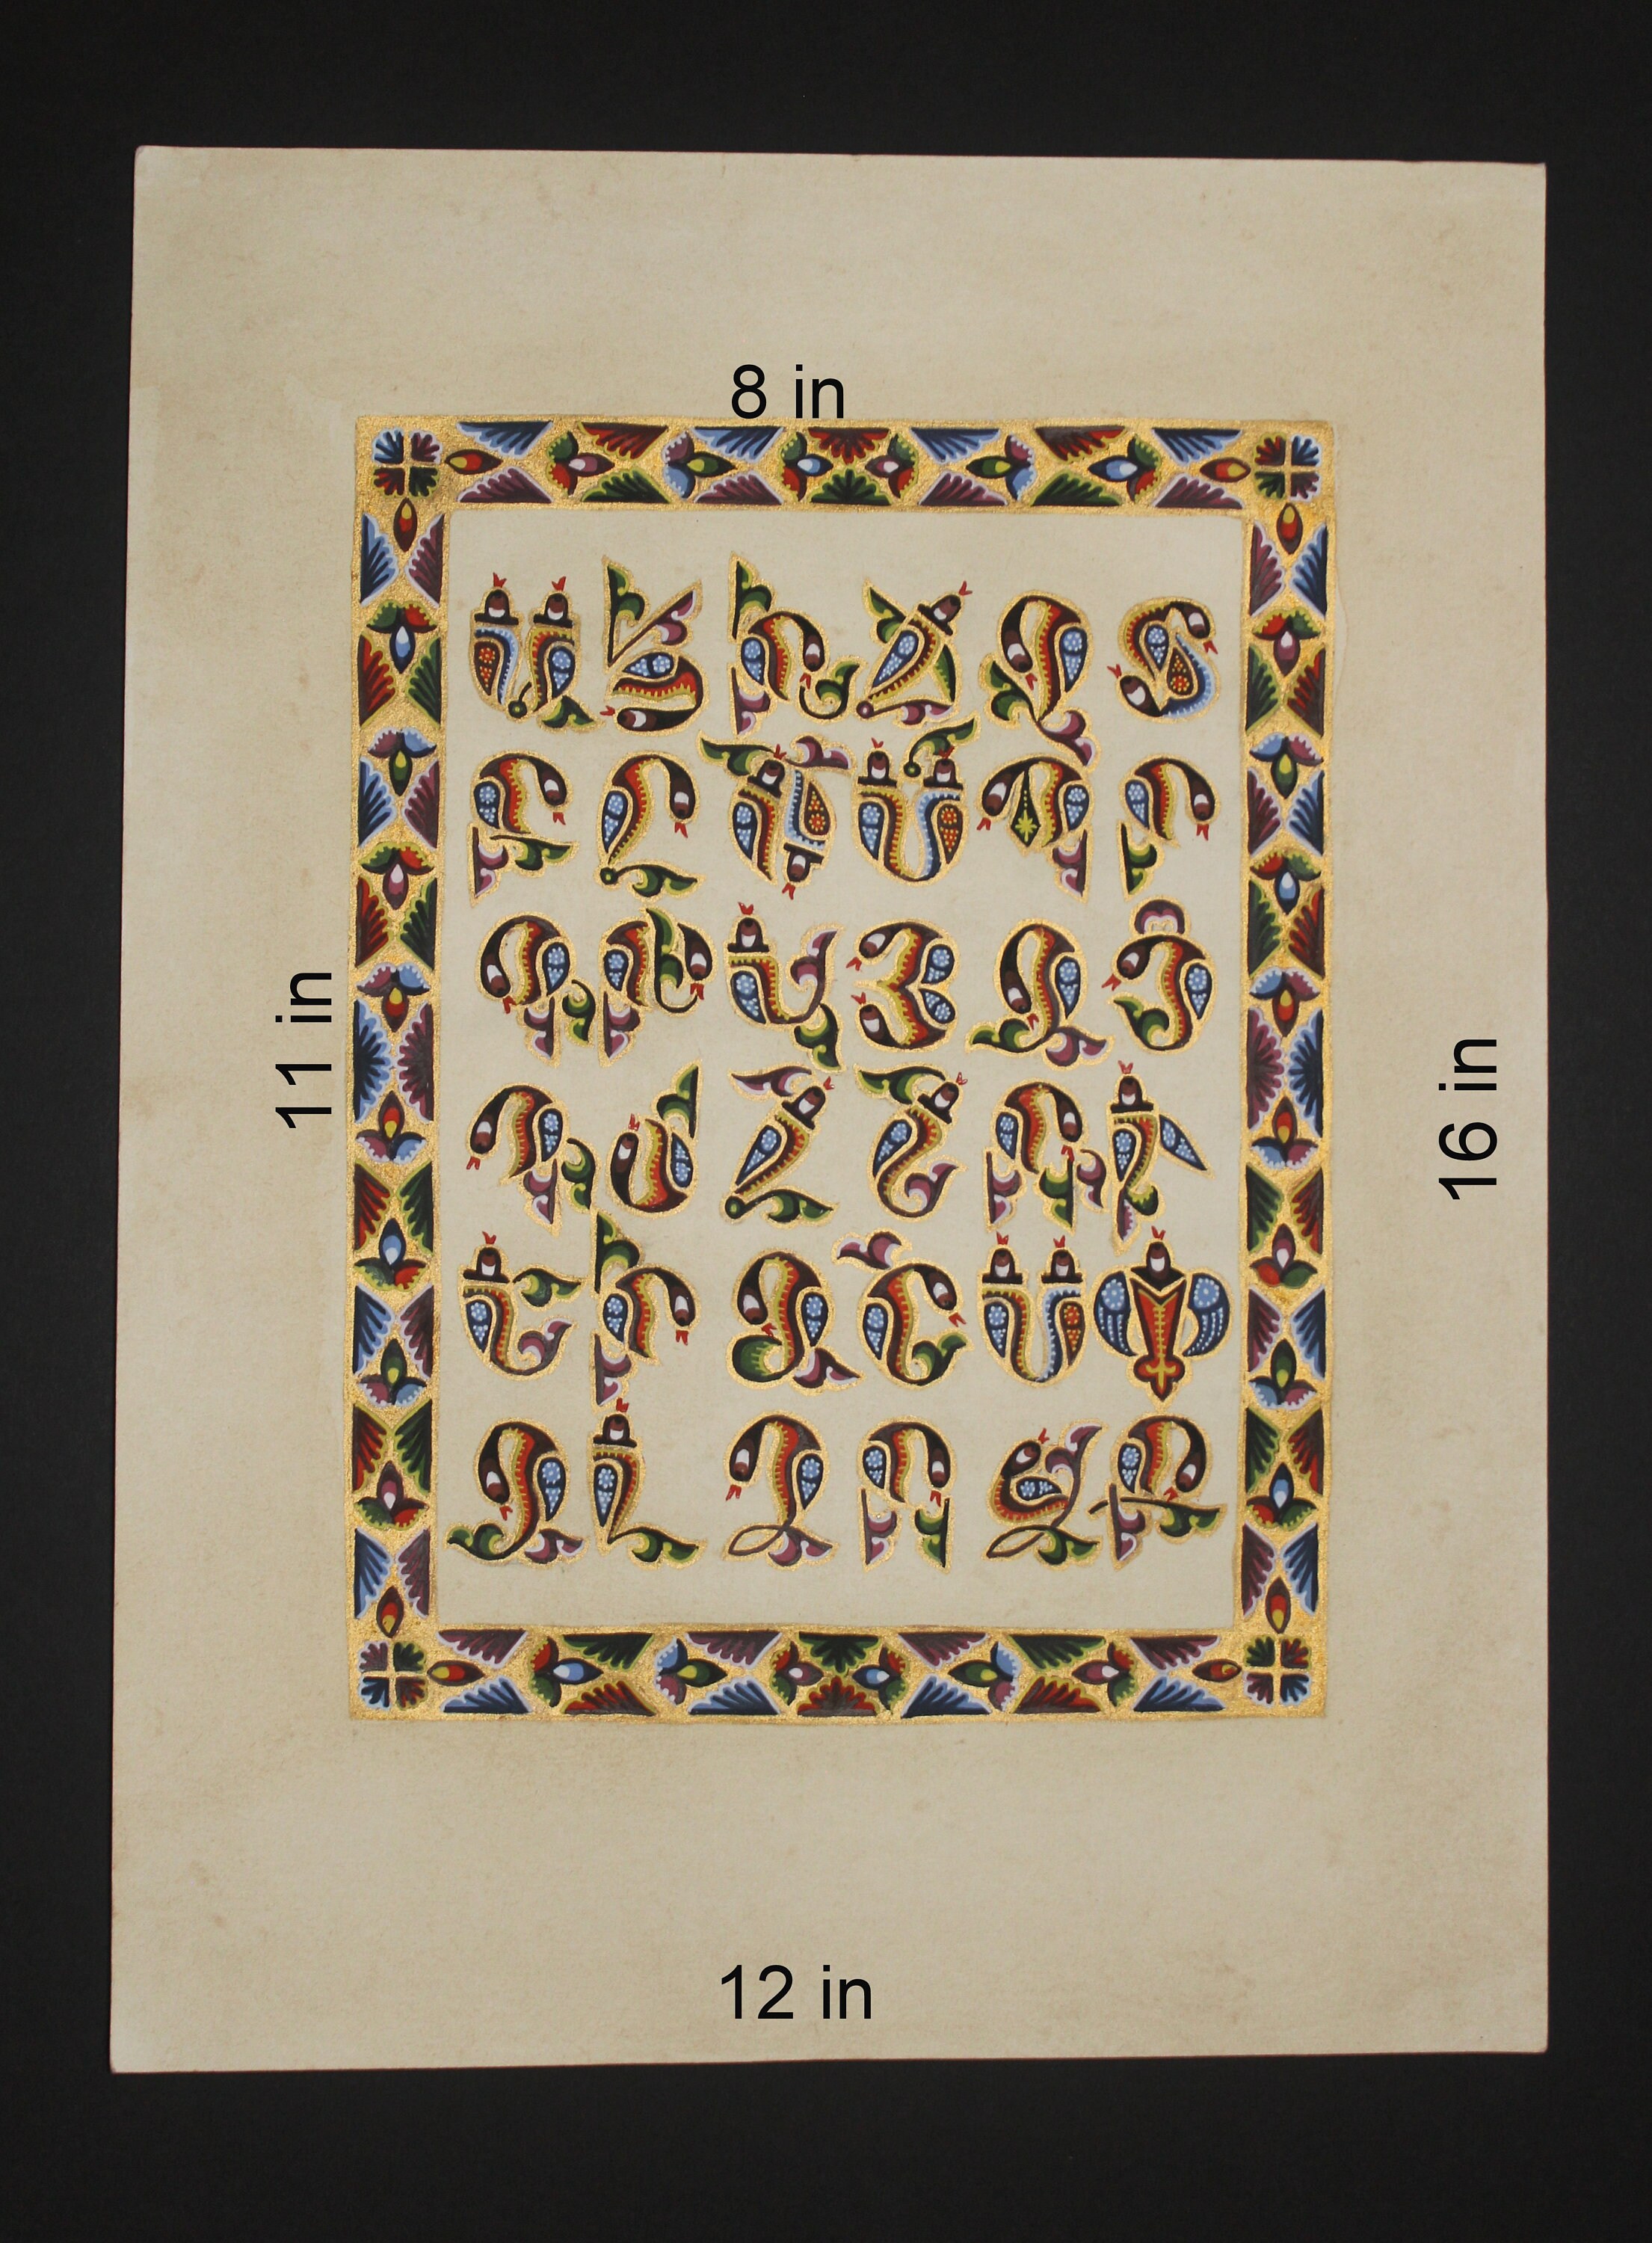 8 in
Ա Է Խ Ճ Չ Տ
Բ Ը Ծ Մ Պ Ր
Գ Թ Կ Յ Ջ Ց
11 in
16 in
Դ Ժ Հ Ն Ռ Ւ
Ե Ի Ձ Շ Ս Փ
Զ Լ Ղ Ո Վ Ք
12 in